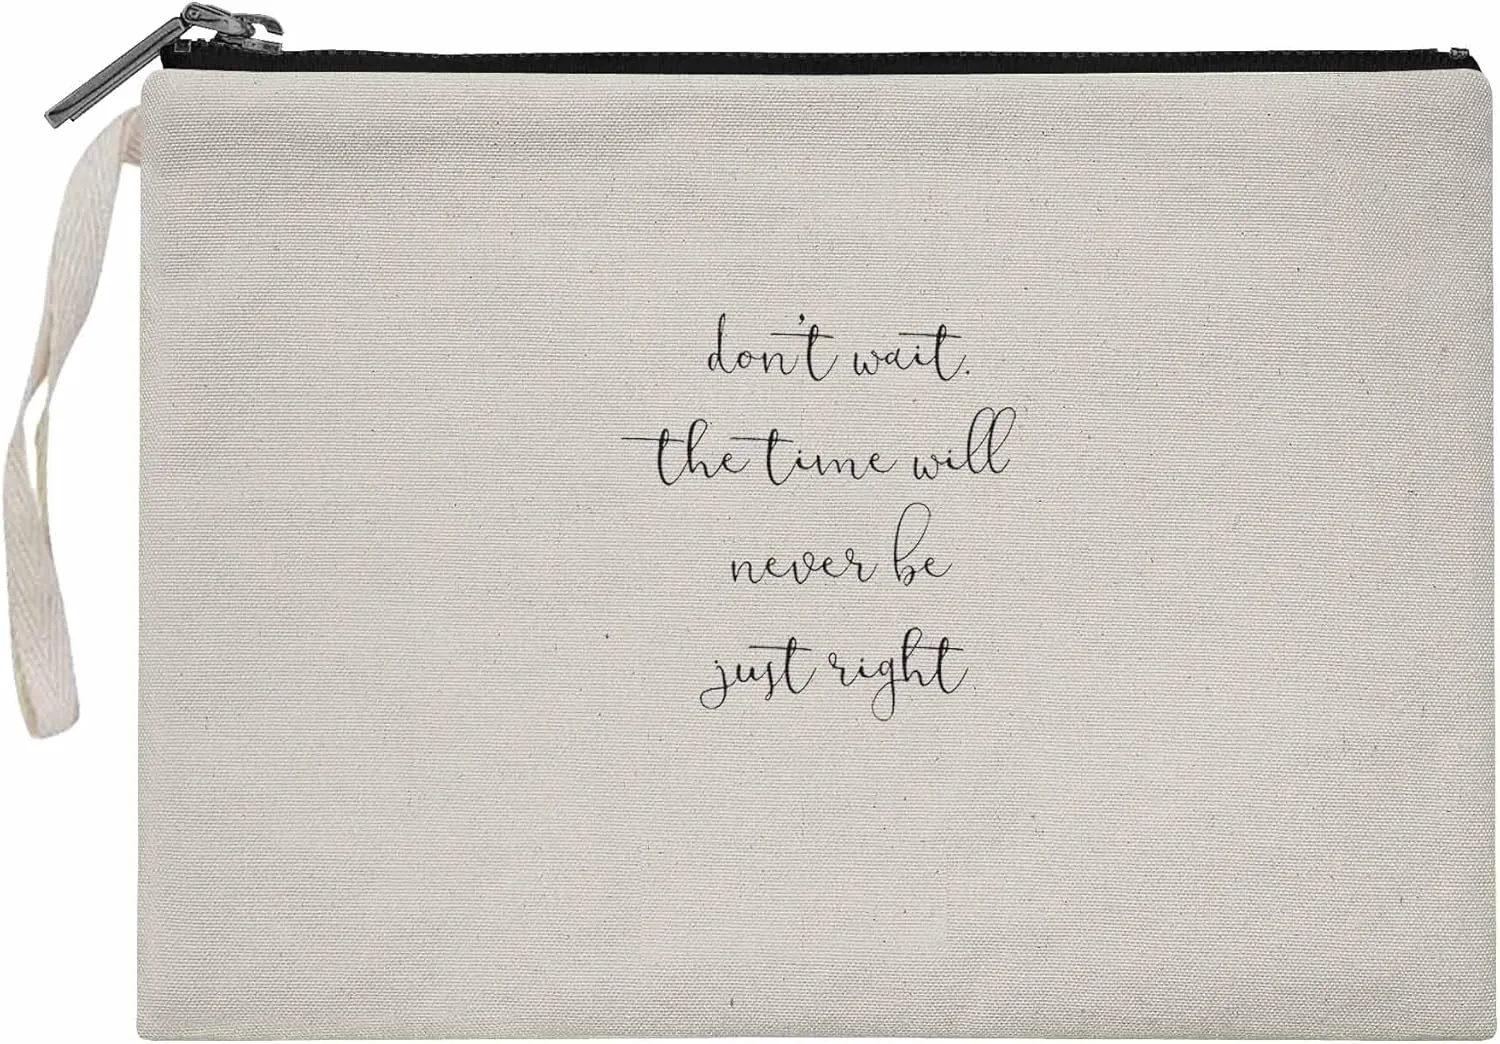 don't wait.
the time will
never be
just right.